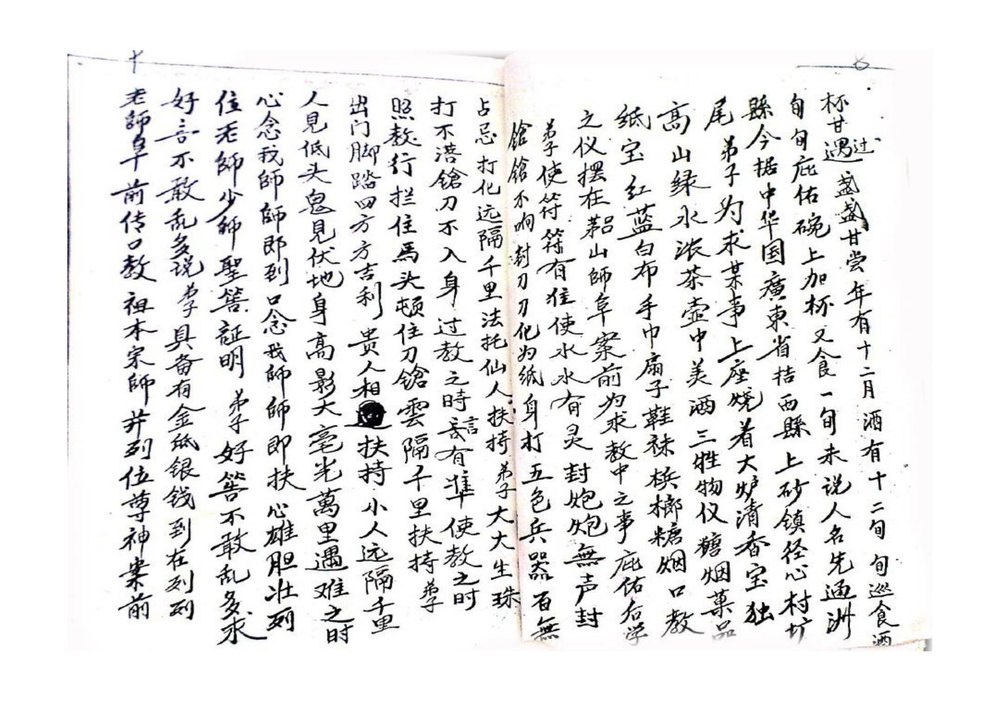 8
杯甘遇过盏盏甘尝年有十二月酒有十二旬旬巡食酒
旬旬庇佑碗上加杯又食一旬未说人名先通洲
縣今据中华国廣東省揭西縣上砂镇径心村圹
尾弟子为求某事上座燒着大炉清香宝独
高山绿水浓茶壶中美酒三牲物仪糖烟菓品
纸宝红蓝白布手巾扇子鞋袜槟榔糖烟口教
之仪摆在茅山師阜案前为求教中之事庇佑后学
弟子使符符有准使水水有灵封炮炮無声封
鎗鎗不响封刀刀化为纸身打五色兵器百無
占忌打化远隔千里法托仙人扶持弟子大大生珠
打不湆鎗刀不入身过教之時言言有準使教之时
照教行拦住馬头顿住刀鎗雲隔千里扶持弟子
出门脚踏四方方吉利贵人相扶持小人远隔千里
人見低头鬼見伏地身高影大毫光萬里遇难之时
心念我師師即到口念我師師即扶心雄胆壮列
位老師少師聖筶証明弟子好筶不敢乱多求
好言不敢乱多说弟子具备有金纸银钱到在列列
十
老師阜前传口教祖本宗師并列位尊神案前